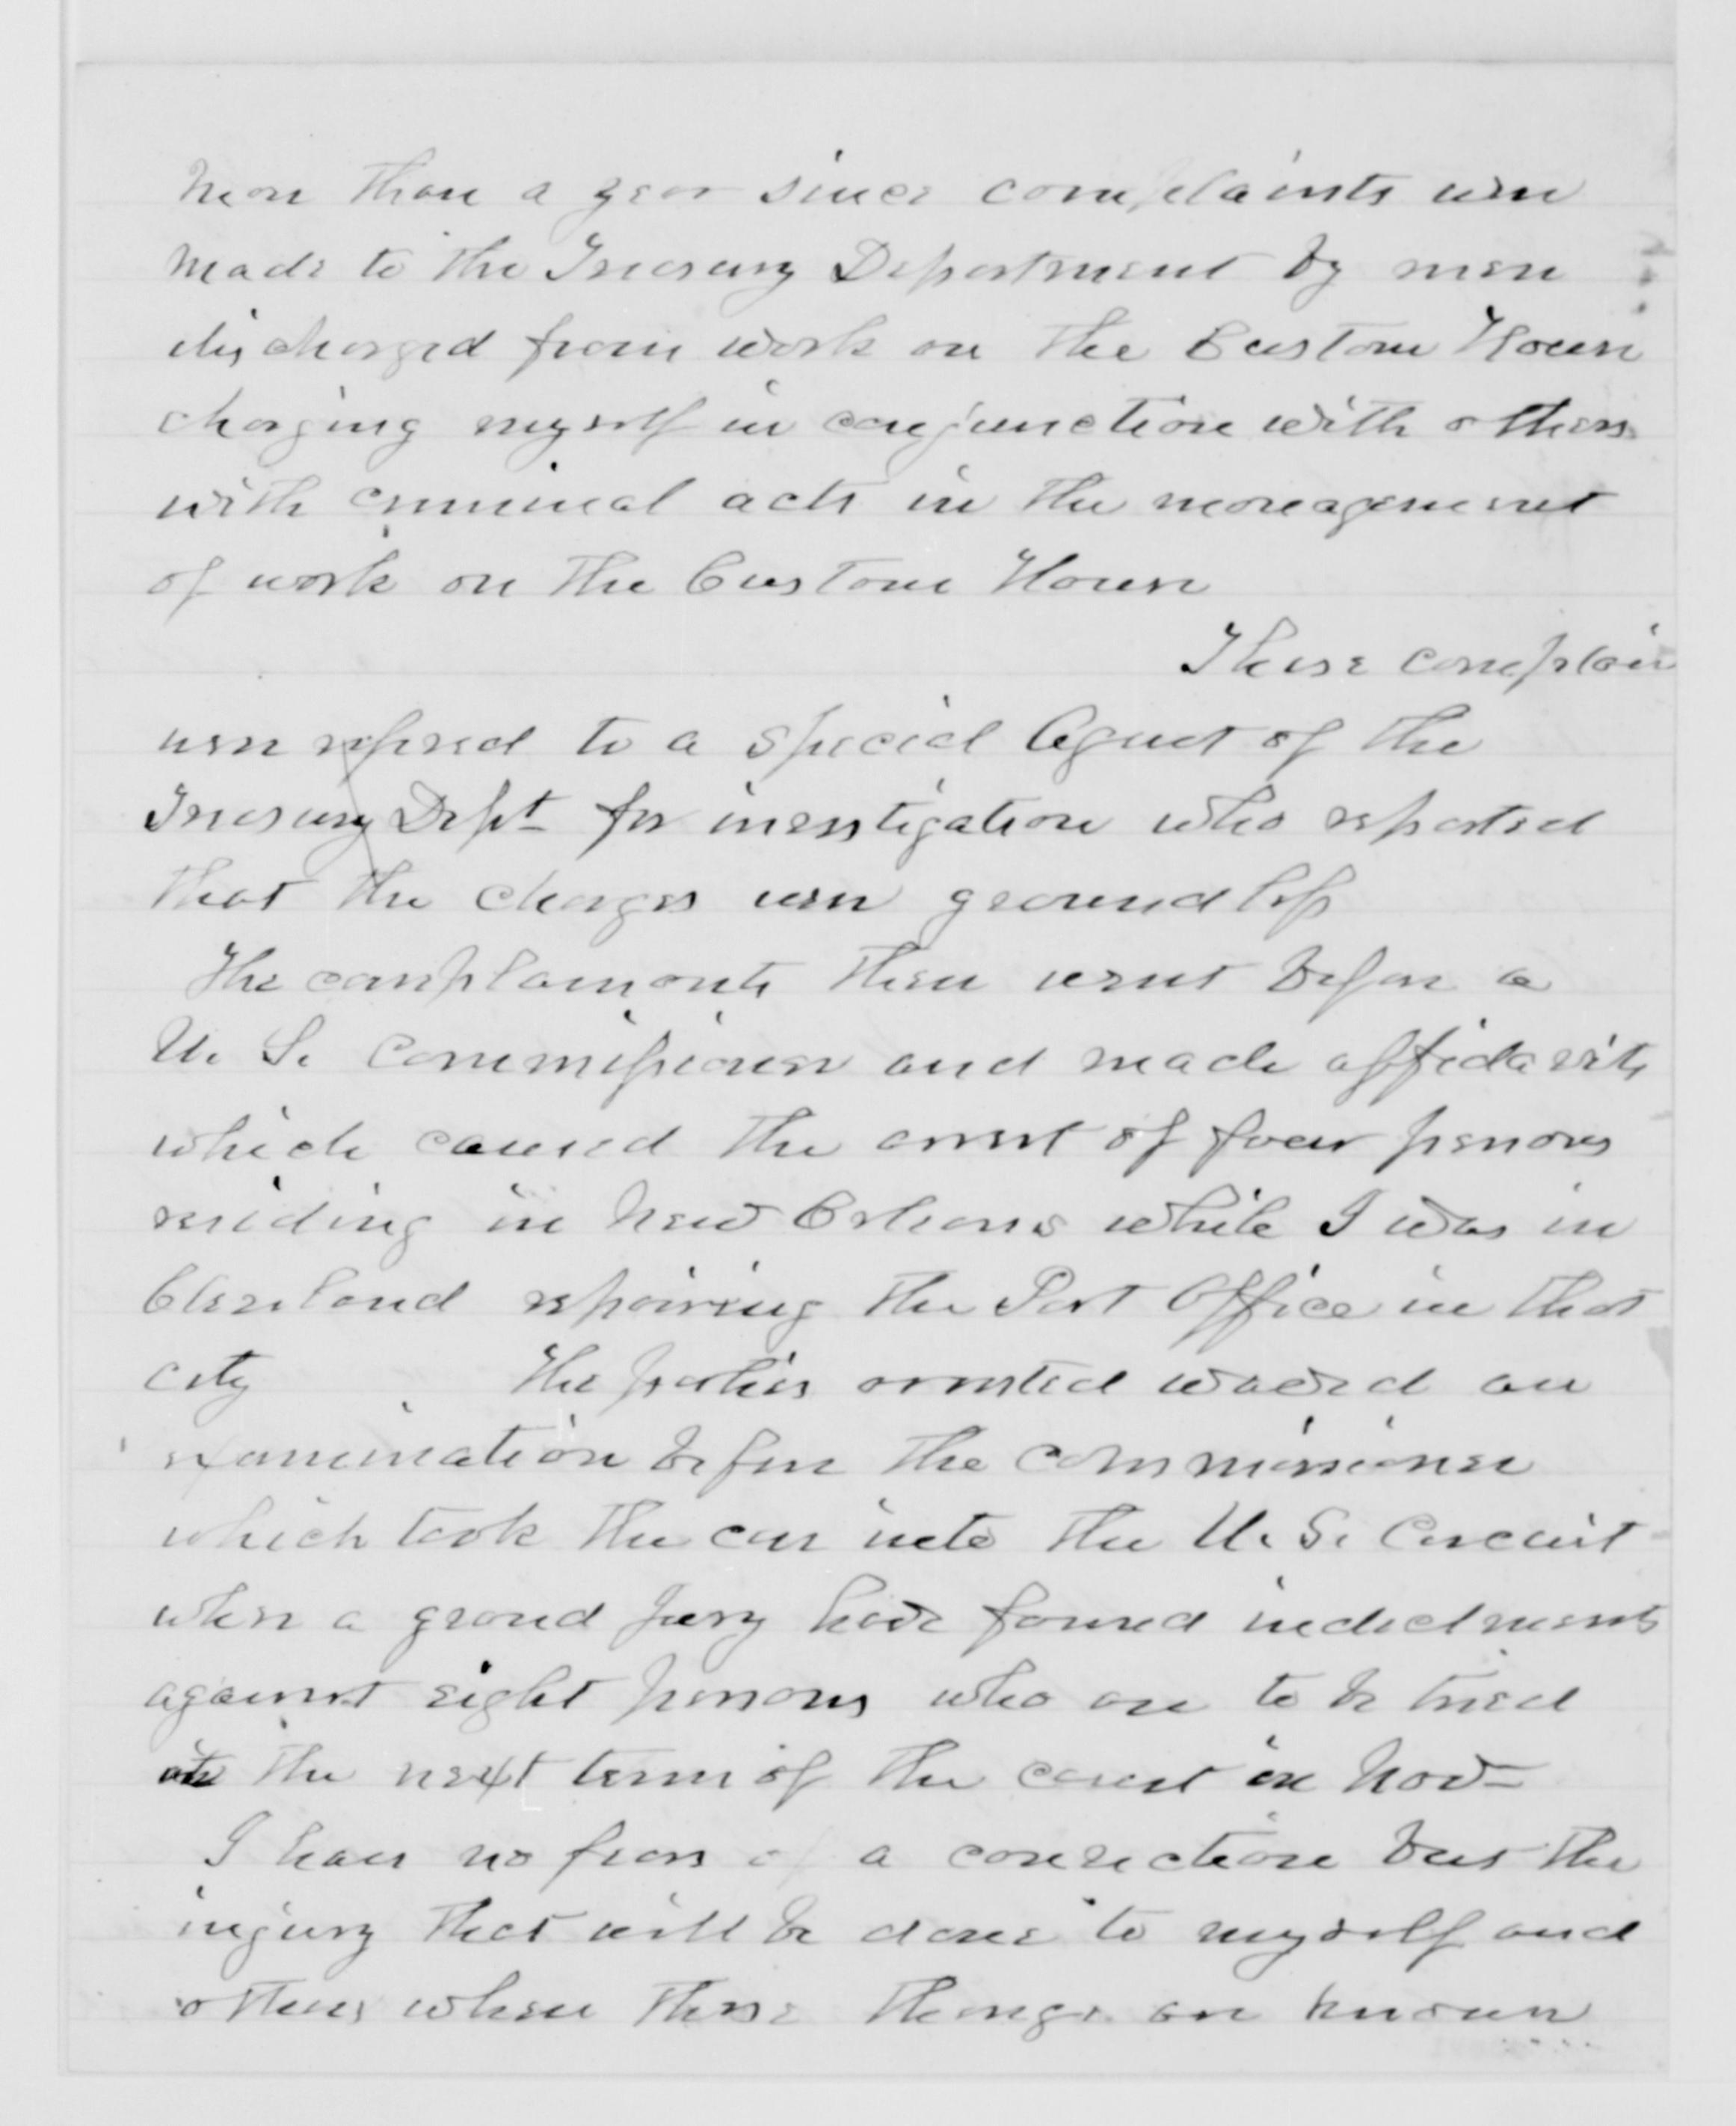 More than a year since complaints were
made to the Treasury Department by men
discharged from work on the Custom House
charging myself in conjunction with others
with criminal acts in the management
of work on the Custom House
These complain
were refered to a special Agent of the
Treasury Dept for investigation who reported
that the charges were groundless
The complainants then went before a
U. S. Commissioner and made affidavits
which caused the arrest of four persons
residing in New Orleans while I was in
Cleveland repairing the Post Office in that
city The parties arrested waved an
examination before the commissioner
which took the case into the U. S. Circuit
where a grand Jury have found indictments
against eight persons who are to be tried
at the next term of the court in Nov-
I have no fears of a conviction but the
injury that will be done to myself and
others where these things are known